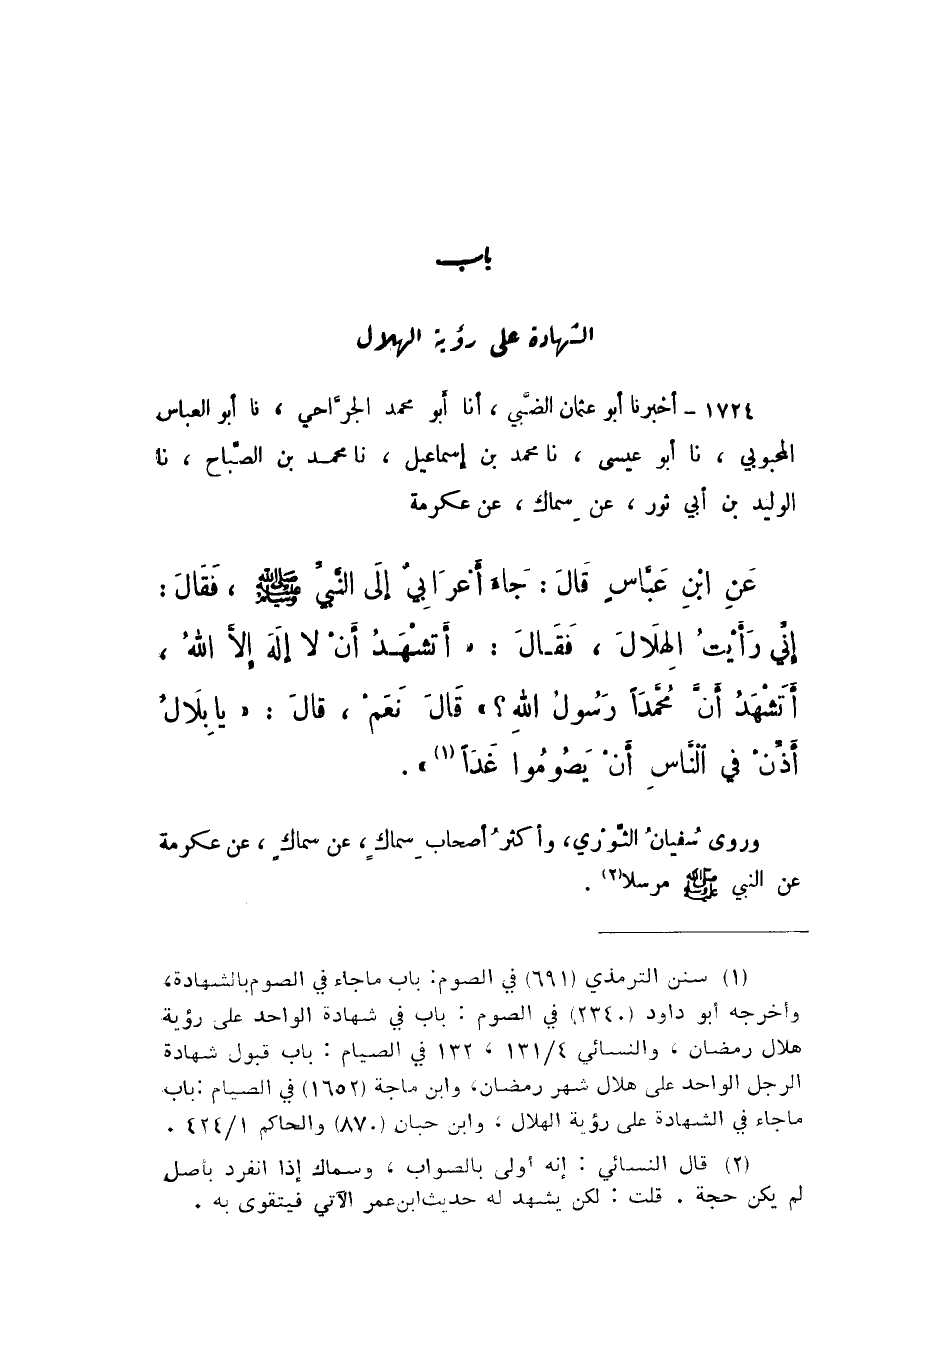 باب
الشهادة على رؤية الهلال
١٧٢٤ – أخبرنا أبو عثمان الضَّبِّي ، أنا أبو محمد الجرَّاحي ، نا أبو العباس
المحبوبي ، نا أبو عيسى ، نا محمد بن إسماعيل ، نا محمد بن الصَّبَّاح ، نا
الوليد بن أبي ثور ، عن سِماك ، عن عكرمة
عَنِ ابْنِ عَبَّاسٍ قَالَ : جَاءَ أَعْرَابِيٌّ إلَى النَّبِيِّ ﷺ ، فَقَالَ :
إنِّي رَأَيْتُ الهِلَالَ ، فَقَالَ : « أَتَشْهَدُ أَنْ لا إلَهَ إلاَّ اللهُ ،
أَتَشْهَدُ أَنَّ مُحَمَّدَاً رَسُولُ اللهِ ؟ » قَالَ نَعَمْ ، قالَ : « يا بِلَالُ
أَذِّنْ في النَّاسِ أَنْ يَصُومُوا غَدَاً (١) » .
وروى سُفيانُ الثَّوْري، وأكثرُ أصحاب سِماكٍ، عن سماكٍ ، عن عكرمة
عن النبي ﷺ مرسلا(٢) .
(١) سنن الترمذي (٦٩١) في الصوم: باب ماجاء في الصوم بالشهادة،
وأخرجه أبو داود (٢٣٤٠) في الصوم : باب في شهادة الواحد على رؤية
هلال رمضان ، والنسائي ١٣١/٤ ، ١٣٢ في الصيام : باب قبول شهادة
الرجل الواحد على هلال شهر رمضان، وابن ماجة (١٦٥٢) في الصيام :باب
ماجاء في الشهادة على رؤية الهلال ، وابن حبان (٨٧٠) والحاكم ٤٢٤/١ .
(٢) قال النسائي : إنه أولى بالصواب ، وسماك إذا انفرد بأصل
لم يكن حجة . قلت : لكن يشهد له حديث ابن عمر الآتي فيتقوى به .